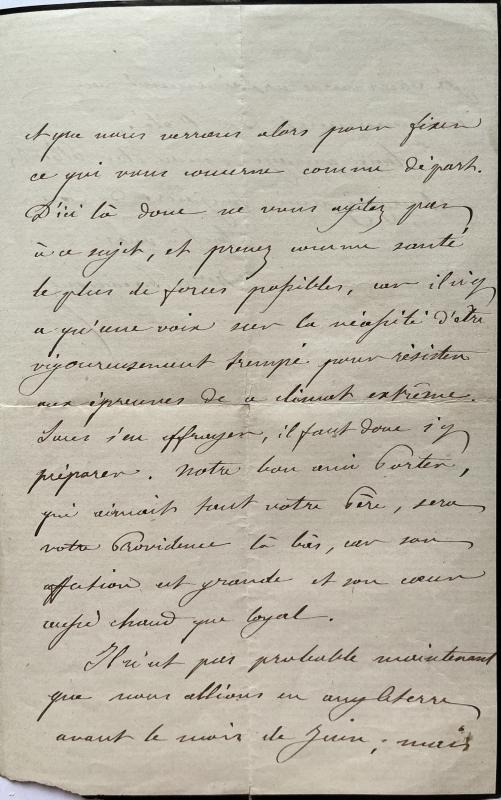 et que nous verrons alors pour fixer
ce qui vous concerne comme départ.
D'ici là donc ne vous agitez pas
à ce sujet, et prenez comme santé
le plus de forces possibles, car il n'y
a qu'une voix sur la nécessité d'être
vigoureusement trempé pour résister
aux épreuves de ce climat extrême.
Sans s'en effrayer, il faut donc s'y
préparer. Notre bon ami Porter,
qui aimait tant votre Père, sera
votre Providence là bas, car son
affection est grande et son cœur
aussi chaud que loyal.
Il n'est pas probable maintenant
que nous allions en angleterre
avant le mois de Juin ; mais